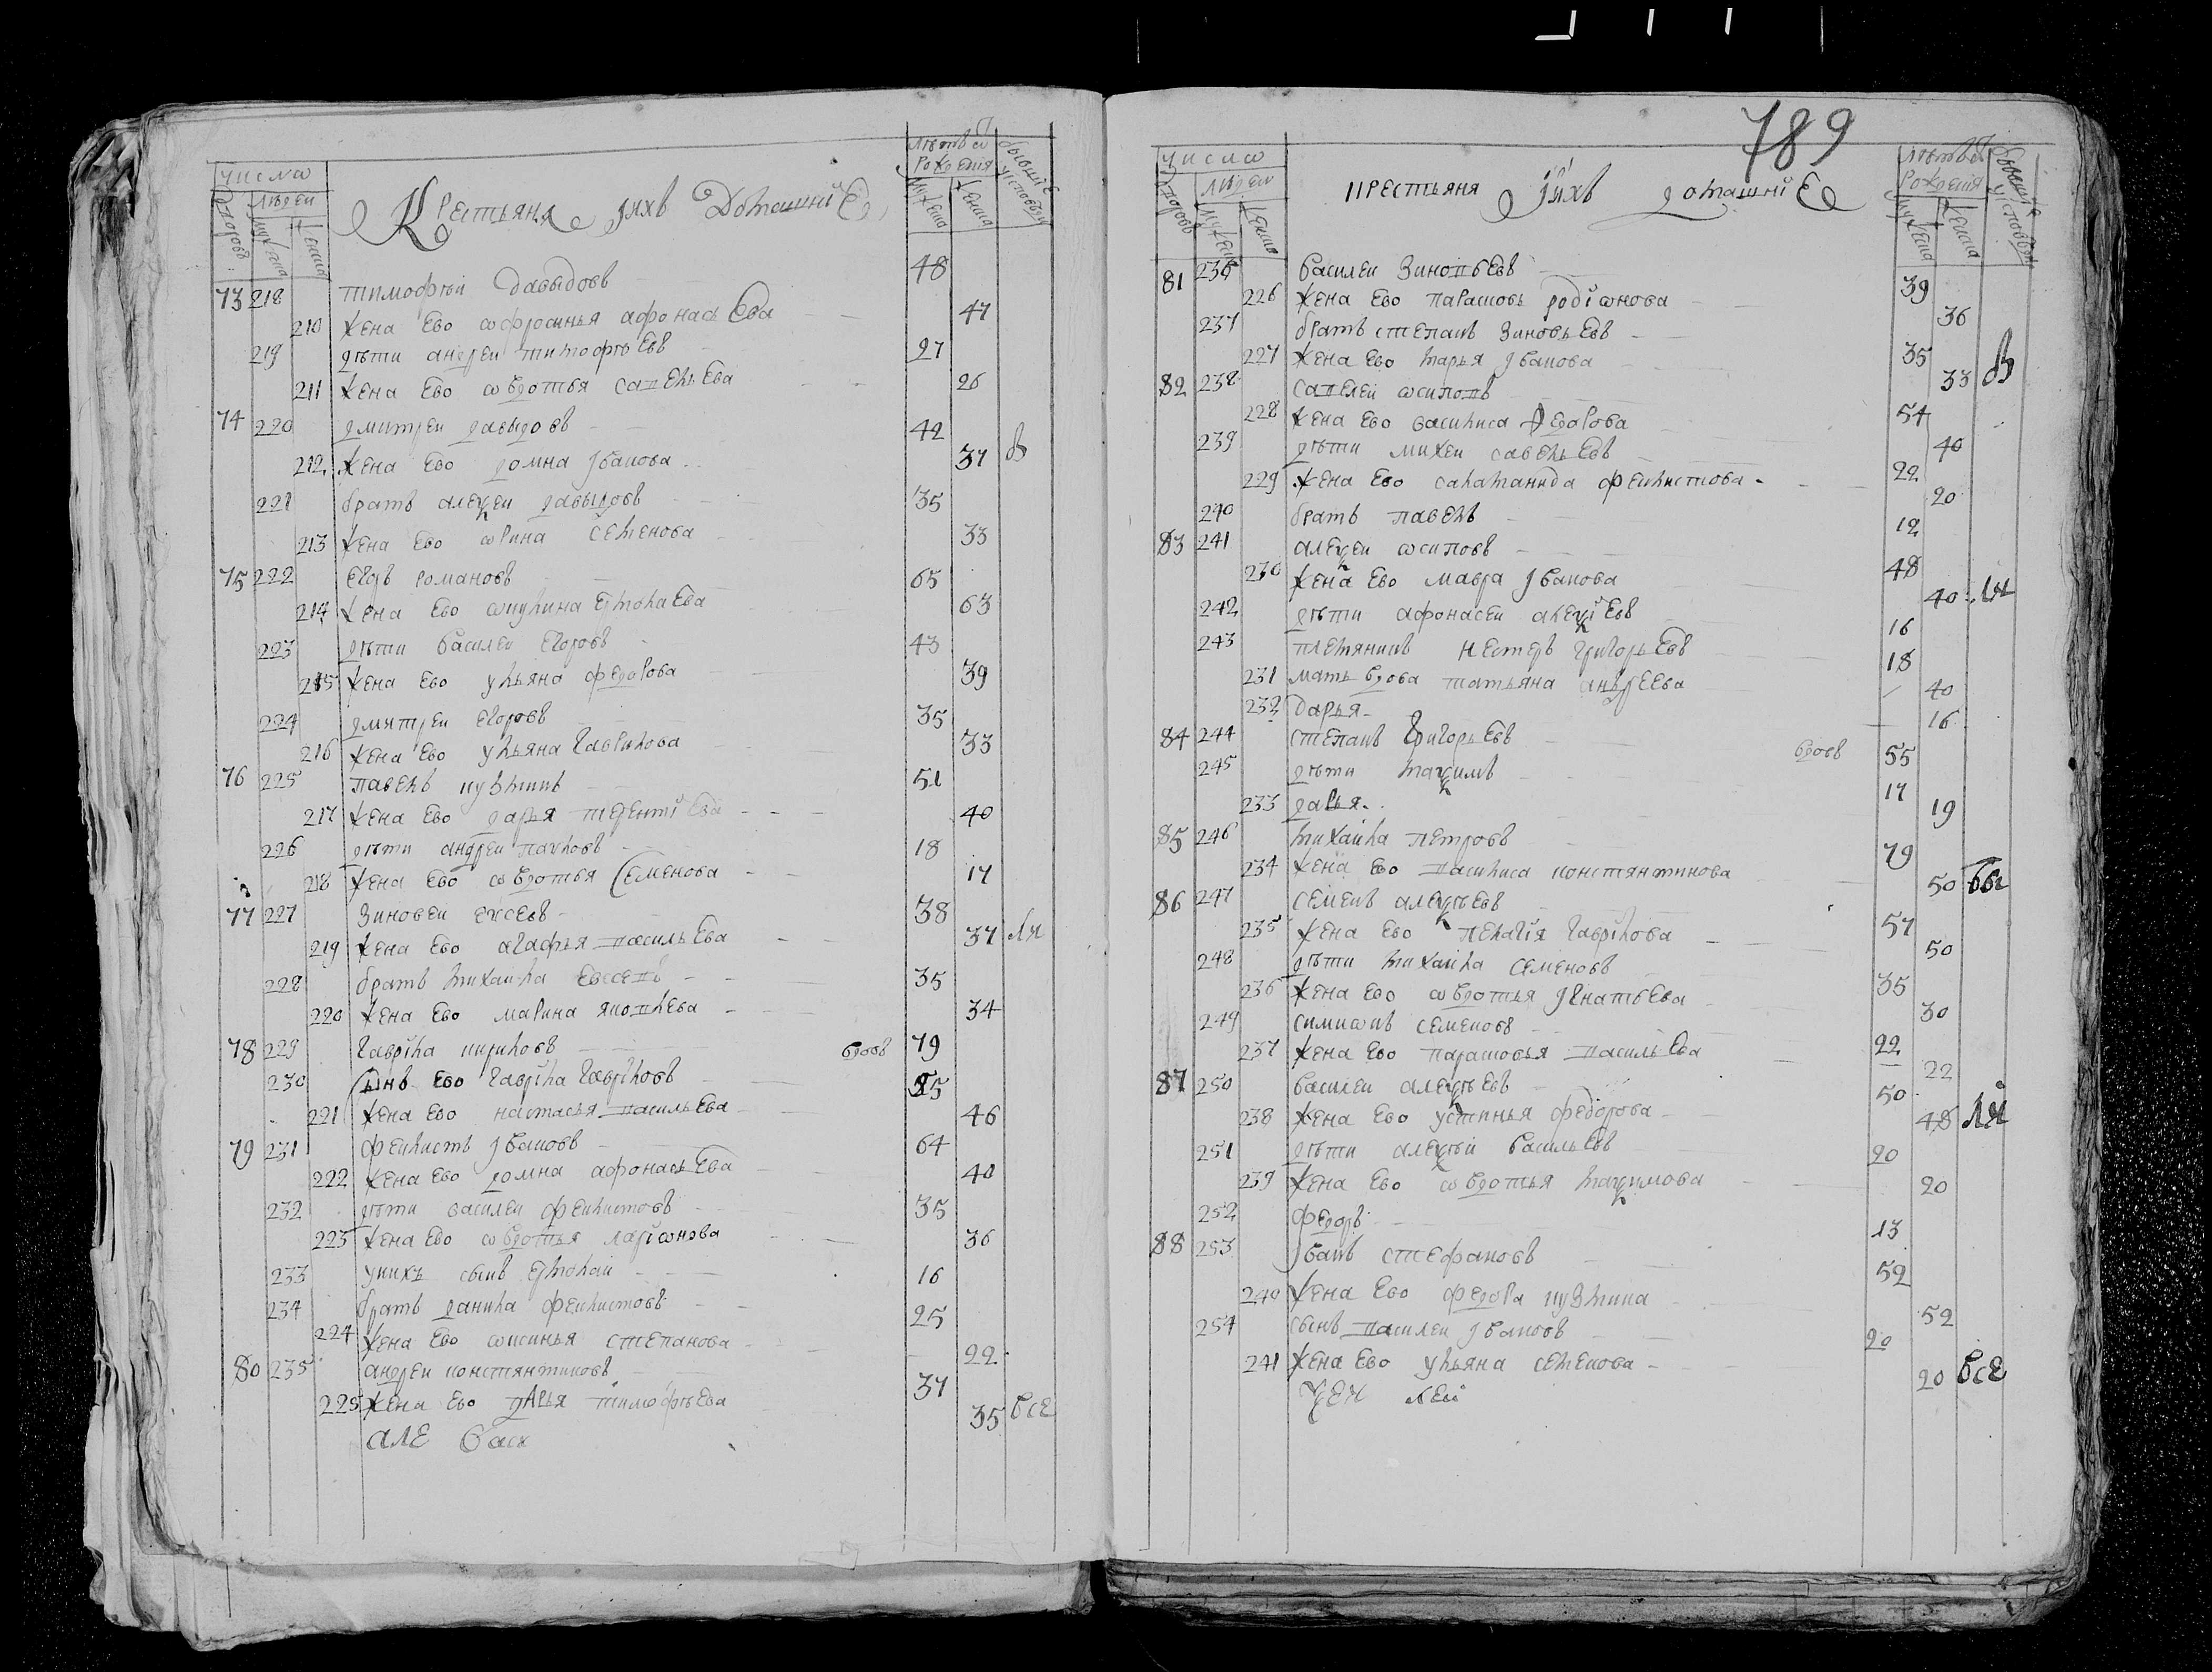 числа
дворовъ
людеи
мужеска
женска
Крестьяня и ихъ Домашние
лѣтъ от рождения
мужеска
женска
бывшие у исповеди
73 218 тимофѣи Давыдовъ 48
210 жена Ево офросинья афонасьЕва 47
219 дѣти андреи тимофѣЕвъ 27
211 жена Ево овдотья савельЕва 26
74 220 дмитреи давыдовъ 42
212 жена Ево домна Iванова 37 в
221 братъ алеѯеи давыдовъ 35
213 жена Ево орина семенова 33
75 222 Егоръ романовъ 65
214 жена Ево окулина ЕрмолаЕва 63
223 дѣти василеи Егоровъ 43
215 жена Ево ульяна федорова 39
224 дмитреи Егоровъ 35
216 жена Ево ульяна гаврилова 33
76 225 павелъ кузминъ 51
217 жена Ево дарья терентiЕва 40
226 дѣти андреи павловъ 18
218 жена Ево овдотья семенова 17
77 227 зиновеи евсевъ 38
219 жена Ево агафья васильЕва 37 ли
228 братъ михаила Евсевъ 35
220 жена Ево марина яковлева 34
78 229 гаврiла кириловъ вдовъ 79
230 сынъ Ево гаврiла гаврiловъ 25
221 жена Ево настасья васильЕва 46
79 231 феклистъ Iвановъ 64
222 жена Ево домна афонасьЕва 40
232 дѣти василеи феклистовъ 35
223 жена Ево овдотья ларiонова 36
233 у нихъ сынъ Ермолаи 16
234 братъ данила феклистовъ 25
224 жена Ево оксинья степанова 22
80 235 андреи константиновъ 37
225 жена Ево дарья тимофѣЕва 35 все
але васи
789
числа
дворовъ
людеи
мужеска
женска
крестьяня и ихъ домашние
лѣтъ от рождения
мужеска
женска
бывшие у исповеди
81 236 василеи зиновьЕвъ 39
226 жена Ево парасковь родiонова 36
237 братъ степанъ зиновьЕвъ 35
227 жена Ево марья Iванова 33 в
82 238 савелеи осиповъ 54
228 жена Ево василиса федорова 40
239 дѣти михеи савельЕвъ 22
229 жена Ево саламанида феклистова 20
240 братъ павелъ 12
83 241 алеѯеи осиповъ 48
230 жена Ево мавра Iванова 40 ли
242 дѣти афонасеи алеѯiЕвъ 16
243 племянникъ нестеръ григорьЕвъ 18
231 мать вдова татьяна андрЕЕва 40
232 дарья 16
84 244 степанъ григорьЕвъ вдовъ 55
245 дѣти маѯимъ 17
233 дарья 19
85 246 михаила петровъ 79
234 жена Ево василиса константинова 50 бы
86 247 семенъ алеѯѣЕвъ 57
235 жена Ево пелагiя гаврiлова 50
248 дѣти михаила семеновъ 35
236 жена Ево овдотья IгнатьЕва 30
249 симионъ семеновъ 22
237 жена Ево парасковья васильЕва 22
87 250 василеи алеѯѣЕвъ 50
238 жена Ево устинья федорова 48 ли
251 дѣти алеѯѣи васильЕвъ 20
239 жена Ево овдотья маѯимова 20
252 федоръ 13
88 253 Iванъ стефановъ 52
240 жена Ево федора кузмина 52
254 сынъ василеи Iвановъ 20
241 жена Ево ульяна семенова 20 все